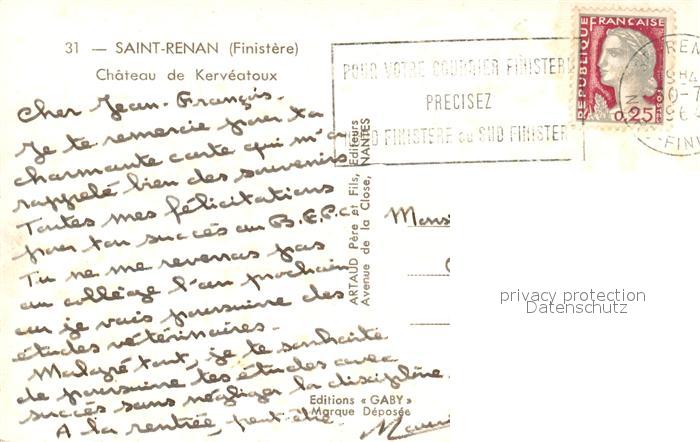 31 — SAINT-RENAN (Finistère)
Château de Kervéatoux
Cher Jean-François.
Je te remercie pour ta
charmante carte qui m'a
rappelé bien des souvenirs
Toutes mes félicitations
pour ton succès au B.E.P.C.
Tu ne me reverras pas
au collège l'an prochain
car je vais poursuivre des
études vétérinaires.
Malgré tout, je te souhaite
de poursuivre tes études avec
succès sans négliger la discipline.
A la rentrée, peut-être.
ARTAUD Père et Fils, Editeurs
Avenue de la Close, NANTES
Editions « GABY »
Marque Déposée
POUR VOTRE COURRIER FINISTERE
PRECISEZ
FINISTERE ou SUD FINISTERE
REPUBLIQUE FRANÇAISE
0,25
POSTES
RENAN
FINI
Mons
privacy protection
Datenschutz